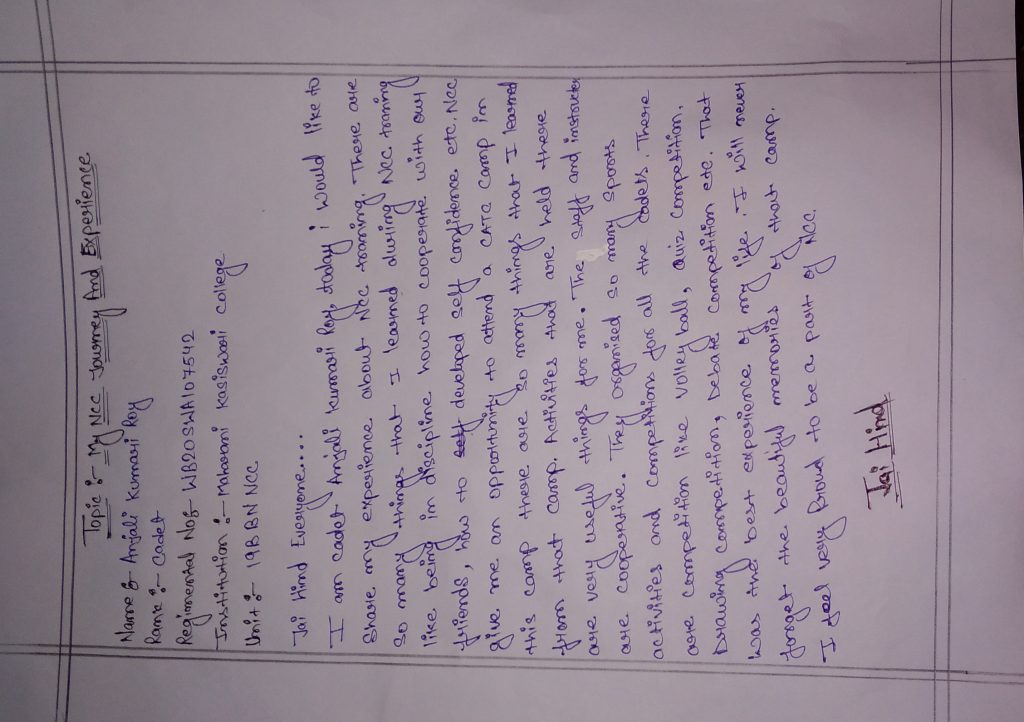 Topic :- My NCC Journey And Experience
Name :- Anjali Kumari Roy
Rank :- Cadet
Regimental No :- WB20SWA107542
Institution :- Maharani Kasiswari College
Unit :- 19B BN NCC
Jai Hind Everyone....
I am cadet Anjali kumari Roy, today i would like to
Share my experience about NCC traning. There are
so many things that I learned during NCC traning
like being in discipline how to cooperate with our
friends, how to developed self confidence etc. NCC
give me an opportunity to attend a CATC camp in
this camp there are so many things that I learned
from that camp. Activities that are held there
are very useful things for me. The staff and instructor
are cooperative. They organised so many Sports
activities and competitions for all the cadets. There
are competition like volley ball, quiz competition,
Drawing competition, Debate competition etc. That
was the best experience of my life. I will never
forget the beautiful memories of that camp.
I feel very Proud to be a part of NCC.
Jai Hind